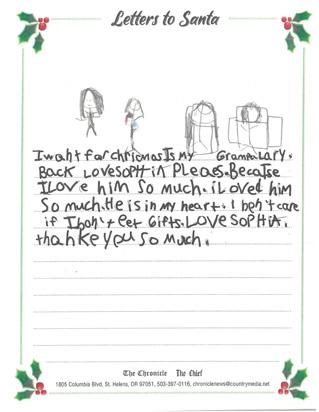 Letters to Santa
I want for chrismas Is my Grampa Lary.
Back Love SOPHiA PLeaes. Because
I Love him so much. i Loved him
So much. He is in my heart. I don't care
if I don't get Gifts. LOVE SOPHiA.
thankeyou so much.
The Chronicle The Chief
1805 Columbia Blvd, St. Helens, OR 97051, 503-397-0116, chroniclenews@countrymedia.net